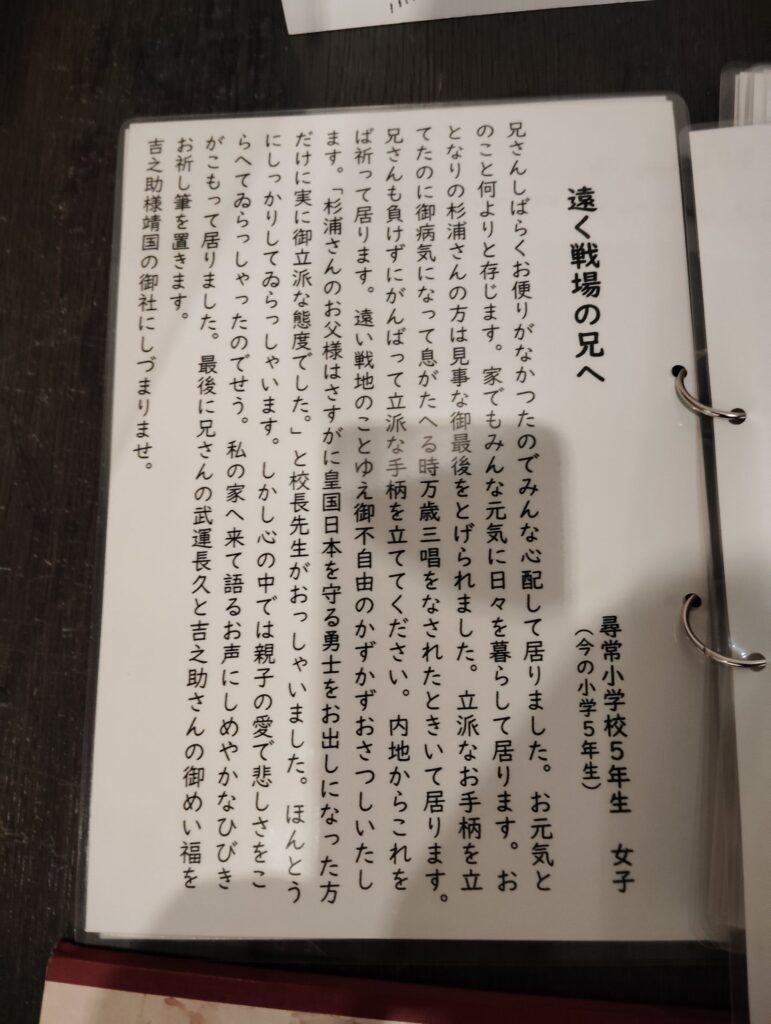 遠く戦場の兄へ
尋常小学校5年生　女子
（今の小学5年生）
兄さんしばらくお便りがなかつたのでみんな心配して居りました。お元気と
のこと何よりと存じます。家でもみんな元気に日々を暮らして居ります。お
となりの杉浦さんの方は見事な御最後をとげられました。立派なお手柄を立
てたのに御病気になって息がたへる時万歳三唱をなされたときいて居ります。
兄さんも負けずにがんばって立派な手柄を立ててください。内地からこれを
ば祈って居ります。遠い戦地のことゆえ御不自由のかずかずおさつしいたし
ます。「杉浦さんのお父様はさすがに皇国日本を守る勇士をお出しになった方
だけに実に御立派な態度でした。」と校長先生がおっしゃいました。ほんとう
にしっかりしてゐらっしゃいます。しかし心の中では親子の愛で悲しさをこ
らへてゐらっしゃったのでせう。私の家へ来て語るお声にしめやかなひびき
がこもって居りました。最後に兄さんの武運長久と吉之助さんの御めい福を
お祈し筆を置きます。
吉之助様靖国の御社にしづまりませ。